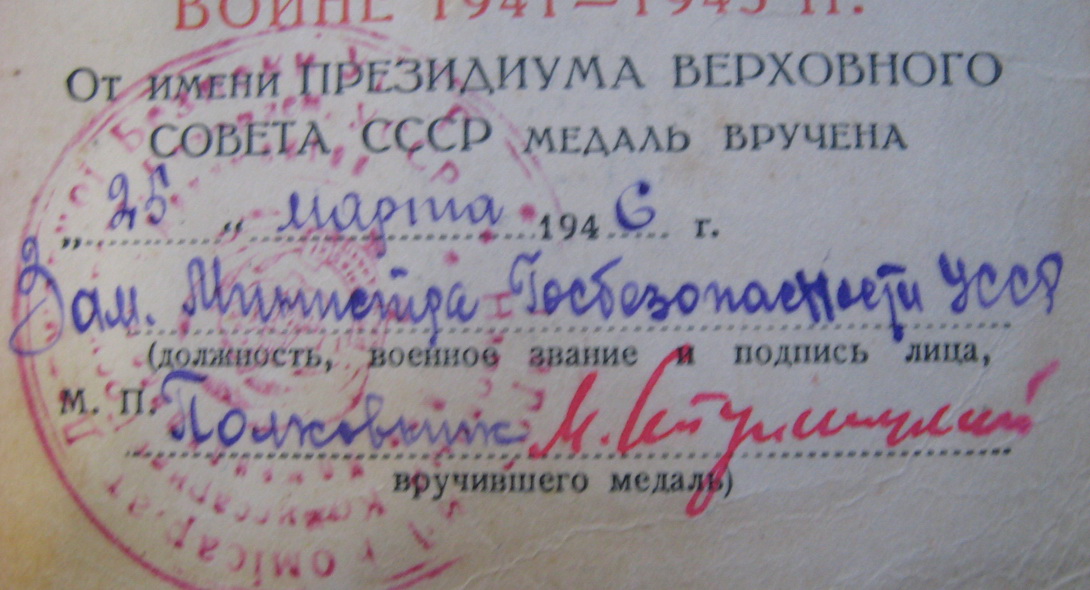 ВОЙНЕ 1941—1945 гг.
От имени ПРЕЗИДИУМА ВЕРХОВНОГО
СОВЕТА СССР МЕДАЛЬ ВРУЧЕНА
„25 „ марта 1946 г.
Зам. Министра Госбезопасности УССР
(должность, военное звание и подпись лица,
М. П. Полковник М.
вручившего медаль)